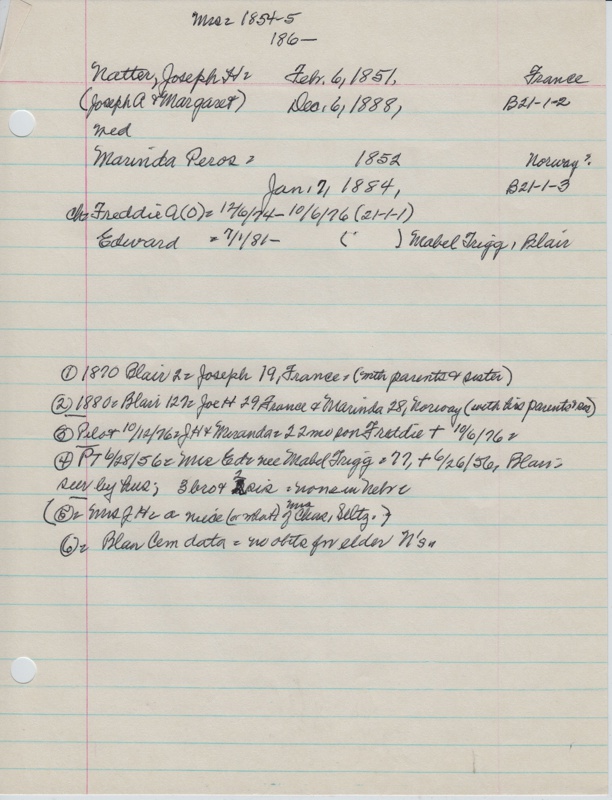 Mrs = 1854-5
186-
Natter, Joseph H = Feb. 6, 1851, France
(Joseph A & Margaret) Dec. 6, 1888, B21-1-2
med
Marinda Peros = 1852 Norway?
Jan. 7, 1884, B21-1-3
ch = Freddie A (O) = 12/6/74 - 10/6/76 (21-1-1)
Edward = 7/1/81- ( ) Mabel Trigg, Blair
① 1870 Blair 2 = Joseph 19, France = (with parents & sister)
② 1880 = Blair 127 = Joe H 29 France & Marinda 28, Norway (with his parents & sis)
③ Pilot 10/12/76 = JH & Miranda = 22 mo son Freddie + 10/6/76 =
④ PT 6/28/56 = Mrs Ed = nee Mabel Trigg = 77, + 6/26/56, Blair =
sur by hus; 3 bro & 2 sis = none in Nebr =
(⑤ = Mrs J.H. = a niece (or what?) of Mrs Chas. Seltz. )
⑥ = Blair Cem data = no obits for elder N's "